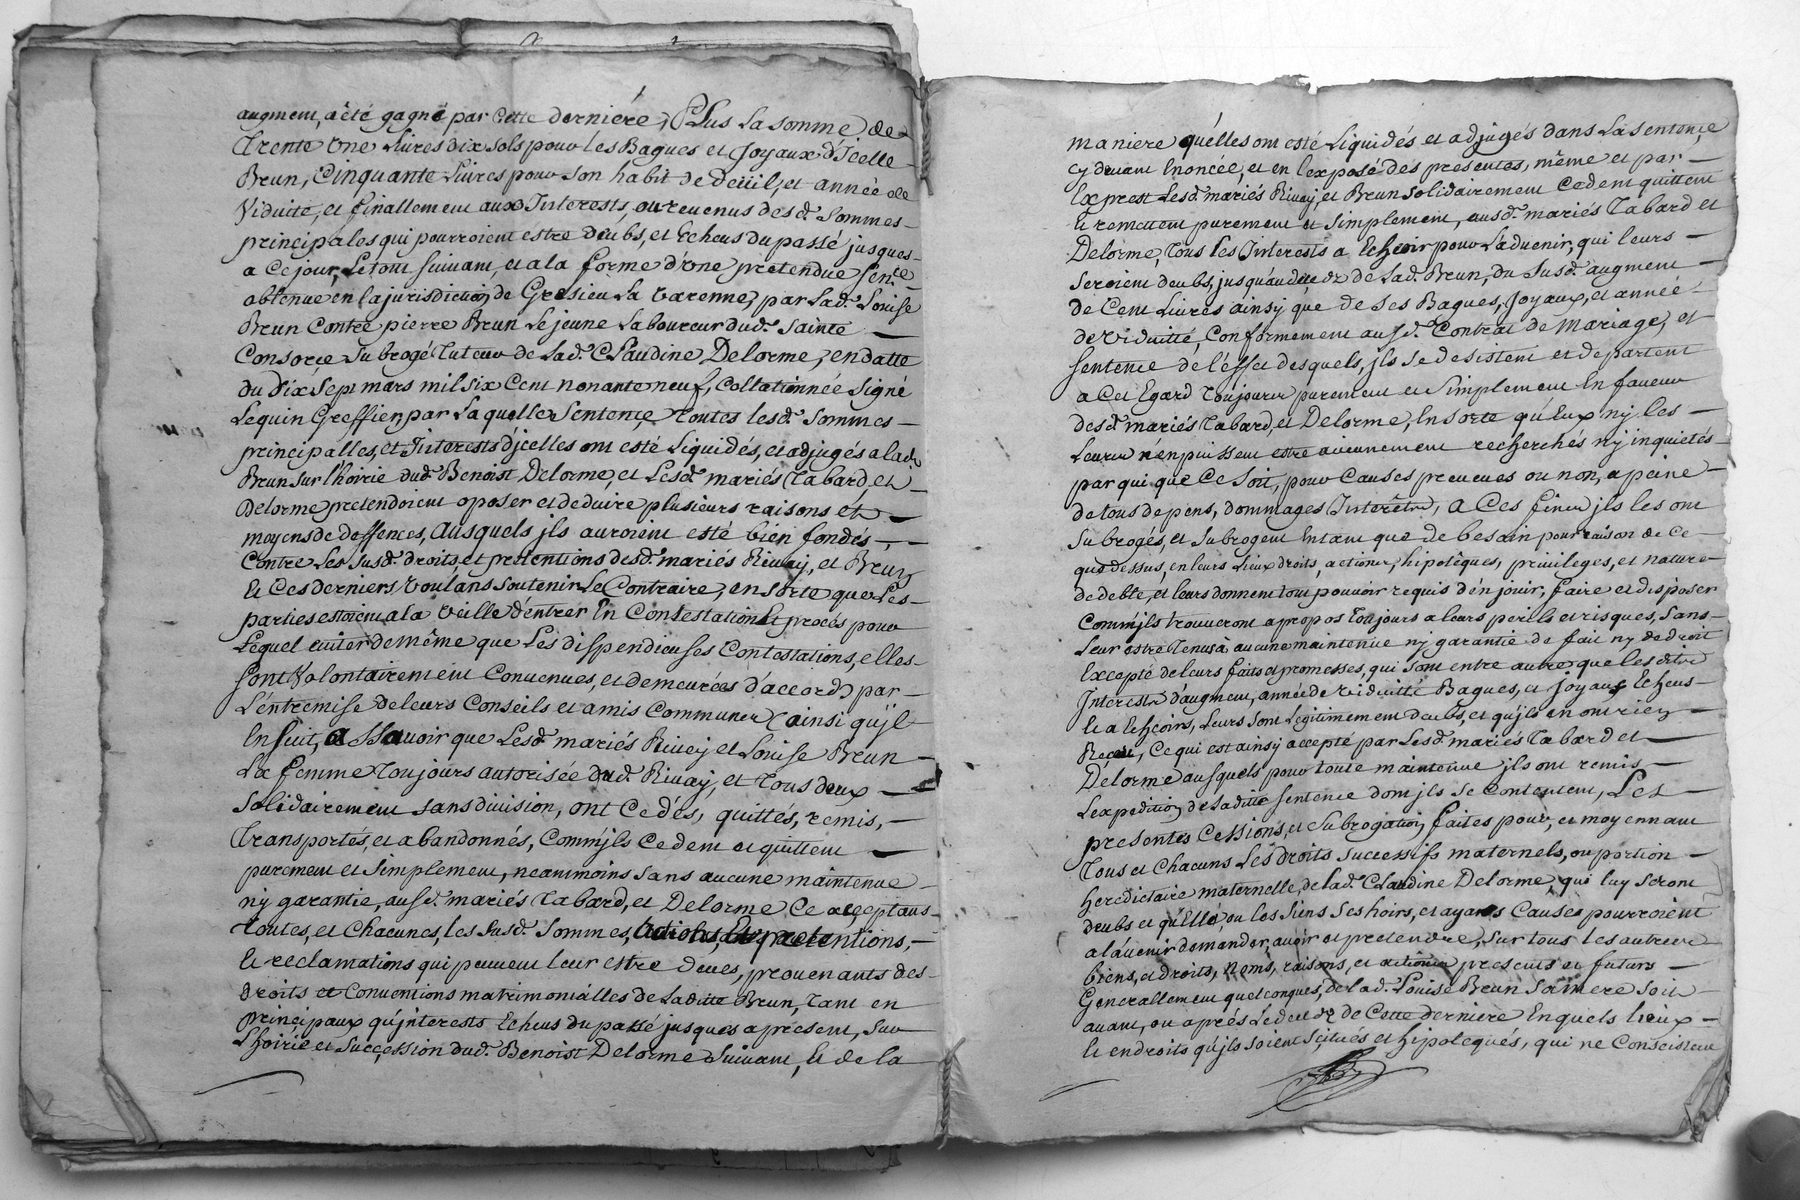 augment, a êté gagné par Cette derniére, Plus La somme de
Trente Une Livres dix sols pour lès Bagues et Joyaux d'Jcelle
Brun, Cinquante Livres pour Son habit de Deüil, et année de
Viduité, et finallement aux Jnterests, ou reuenus desd. Sommes
principales qui pourroient estre deubs, et Echeus du passé jusques
a Ce jour, Le tout suiuant, et a la forme d'une pretendue sence
obtenue en la jurisdiction de Gresieu La Varenne, par Lad. Louise
Brun Contre pierre Brun Le jeune Laboureur dud. Sainte
Consorce Subrogé Tuteur de Lad. Claudine Delorme, en datte
du Dix Sept mars mil six Cent nonante neuf, Collationnée signé
Lequin Greffier, par La quelle Sentence Toutes lesd. Sommes
principalles, et Jnterests d'jcelles ont esté Liquidés, et adjugés a lad.
Brun sur l'hoirie dud. Benoist Delorme, et Lesd. mariés Tabard, et
Delorme pretendoient oposer et deduire plusieurs raisons et
moyens de deffences, Ausquels jls auroient esté bien fondés,
Contre Les susd. droits, et pretentions desd. mariés Riuay, et Brun
Et Ces derniers Voulans soutenir Le Contraire, en sorte que Les
parties estoient a la Veille d'entrer En Contestation Et procés pour
Lequel euiter de même que Les dispendieuses Contestations, elles
sont Volontairement Conuenues, et demeurées d'accord par
L'entremise de leurs Conseils et amis Communs ainsi qu'jl
Ensuit, Assauoir que Lesd. mariés Riuay et Louise Brun
Sa femme Toujours autorisée dud. Riuay, et Tous deux
Solidairement sans diuision, ont Cedés, quittés, remis,
Transportés, et abandonnés, Comm'jls Cedent et quittent
purement et Simplement, neanmoins sans aucune maintenue
ny garantie, ausd. mariés Tabard, et Delorme Ce acceptans
Toutes, et Chacunes, les susd. Sommes, Actions, pretentions,
Et reclamations qui peuuent leur estre deues, prouenants des
droits et Conuentions matrimonialles de Laditte Brun, Tant en
principaux qu'jnterests Echeus du passé jusques a present, Sur
L'hoirie et Succession dud. Benoist Delorme Suiuant, Et de la
maniere qu'elles ont esté Liquidés et adjugés dans La sentence
cy deuant Enoncée, et en l'exposé des presentes, même et par
Exprest Lesd. mariés Riuay, et Brun solidairement Cedent quittent
Et remettent purement et simplement, ausd. mariés Tabard et
Delorme, Tous les Jnterests a Echeoir pour L'aduenir, qui leurs
seroient deubs, jusqu'au decedz de Lad. Brun, du Susd. augment
de Cent Livres ainsy que de Ses Bagues, Joyaux, et année
de Viduitté, Conformement ausd. Contrat de Mariage, et
sentence de l'effet desquels, jls se desistent et departent
a Cet Egard Toujours purement et Simplement En faueur
desd. mariés Tabard, et Delorme, En Sorte qu'Eux ny les
Leurs n'en puissent estre aucunement recherchés ny inquietés
par qui que Ce soit, pour Causes preueues ou non, a peine
de tous depens, dommages Jnterêts, A Ces fins jls les ont
Subrogés, et Subrogent Entant que de besoin pour raison de Ce
que dessus, en leurs Lieux droits, actions, hipotêques, priuileges, et nature
de debte, et leurs donnent tout pouuoir requis d'en jouir, faire et disposer
Comm'jls trouueront apropos Toujours a leurs perils et risques, sans
Leur estre Tenus a aucune maintenue ny garantie de fait ny de droit
Excepté de leurs faits et promesses, qui sont entre autres que lesdits
Jnterests d'augment, année de Viduitté Bagues, et Joyaux Echeus
Et a Echeoirs, Leurs sont Legitimement deubs, et qu'jls en ont rien
Receu, Ce qui est ainsy accepté par Lesd. mariés Tabard et
Delorme ausquels pour toute maintenue jls ont remis
L'expedition de Laditte sentence dont jls se Contentent, Les
presentes Cessions, et Subrogation faites pour, et moyennant
Tous et Chacuns Les droits successifs maternels, ou portion
heredictaire maternelle, de Lad. Claudine Delorme qui luy seront
deubs et qu'Elle, ou les Siens Ses hoirs, et ayans Causes pourroient
a l'auenir demander, auoir et pretendre, Sur tous les autres
biens, et droits, noms, raisons, et actions presents et futurs
Generallement quelconques, de Lad. Louise Brun Sa mere soit
auant, ou aprés Le decedz de Cette derniere En quels lieux
Et endroits qu'jls soient scitués et hipotequés, qui ne Consistent